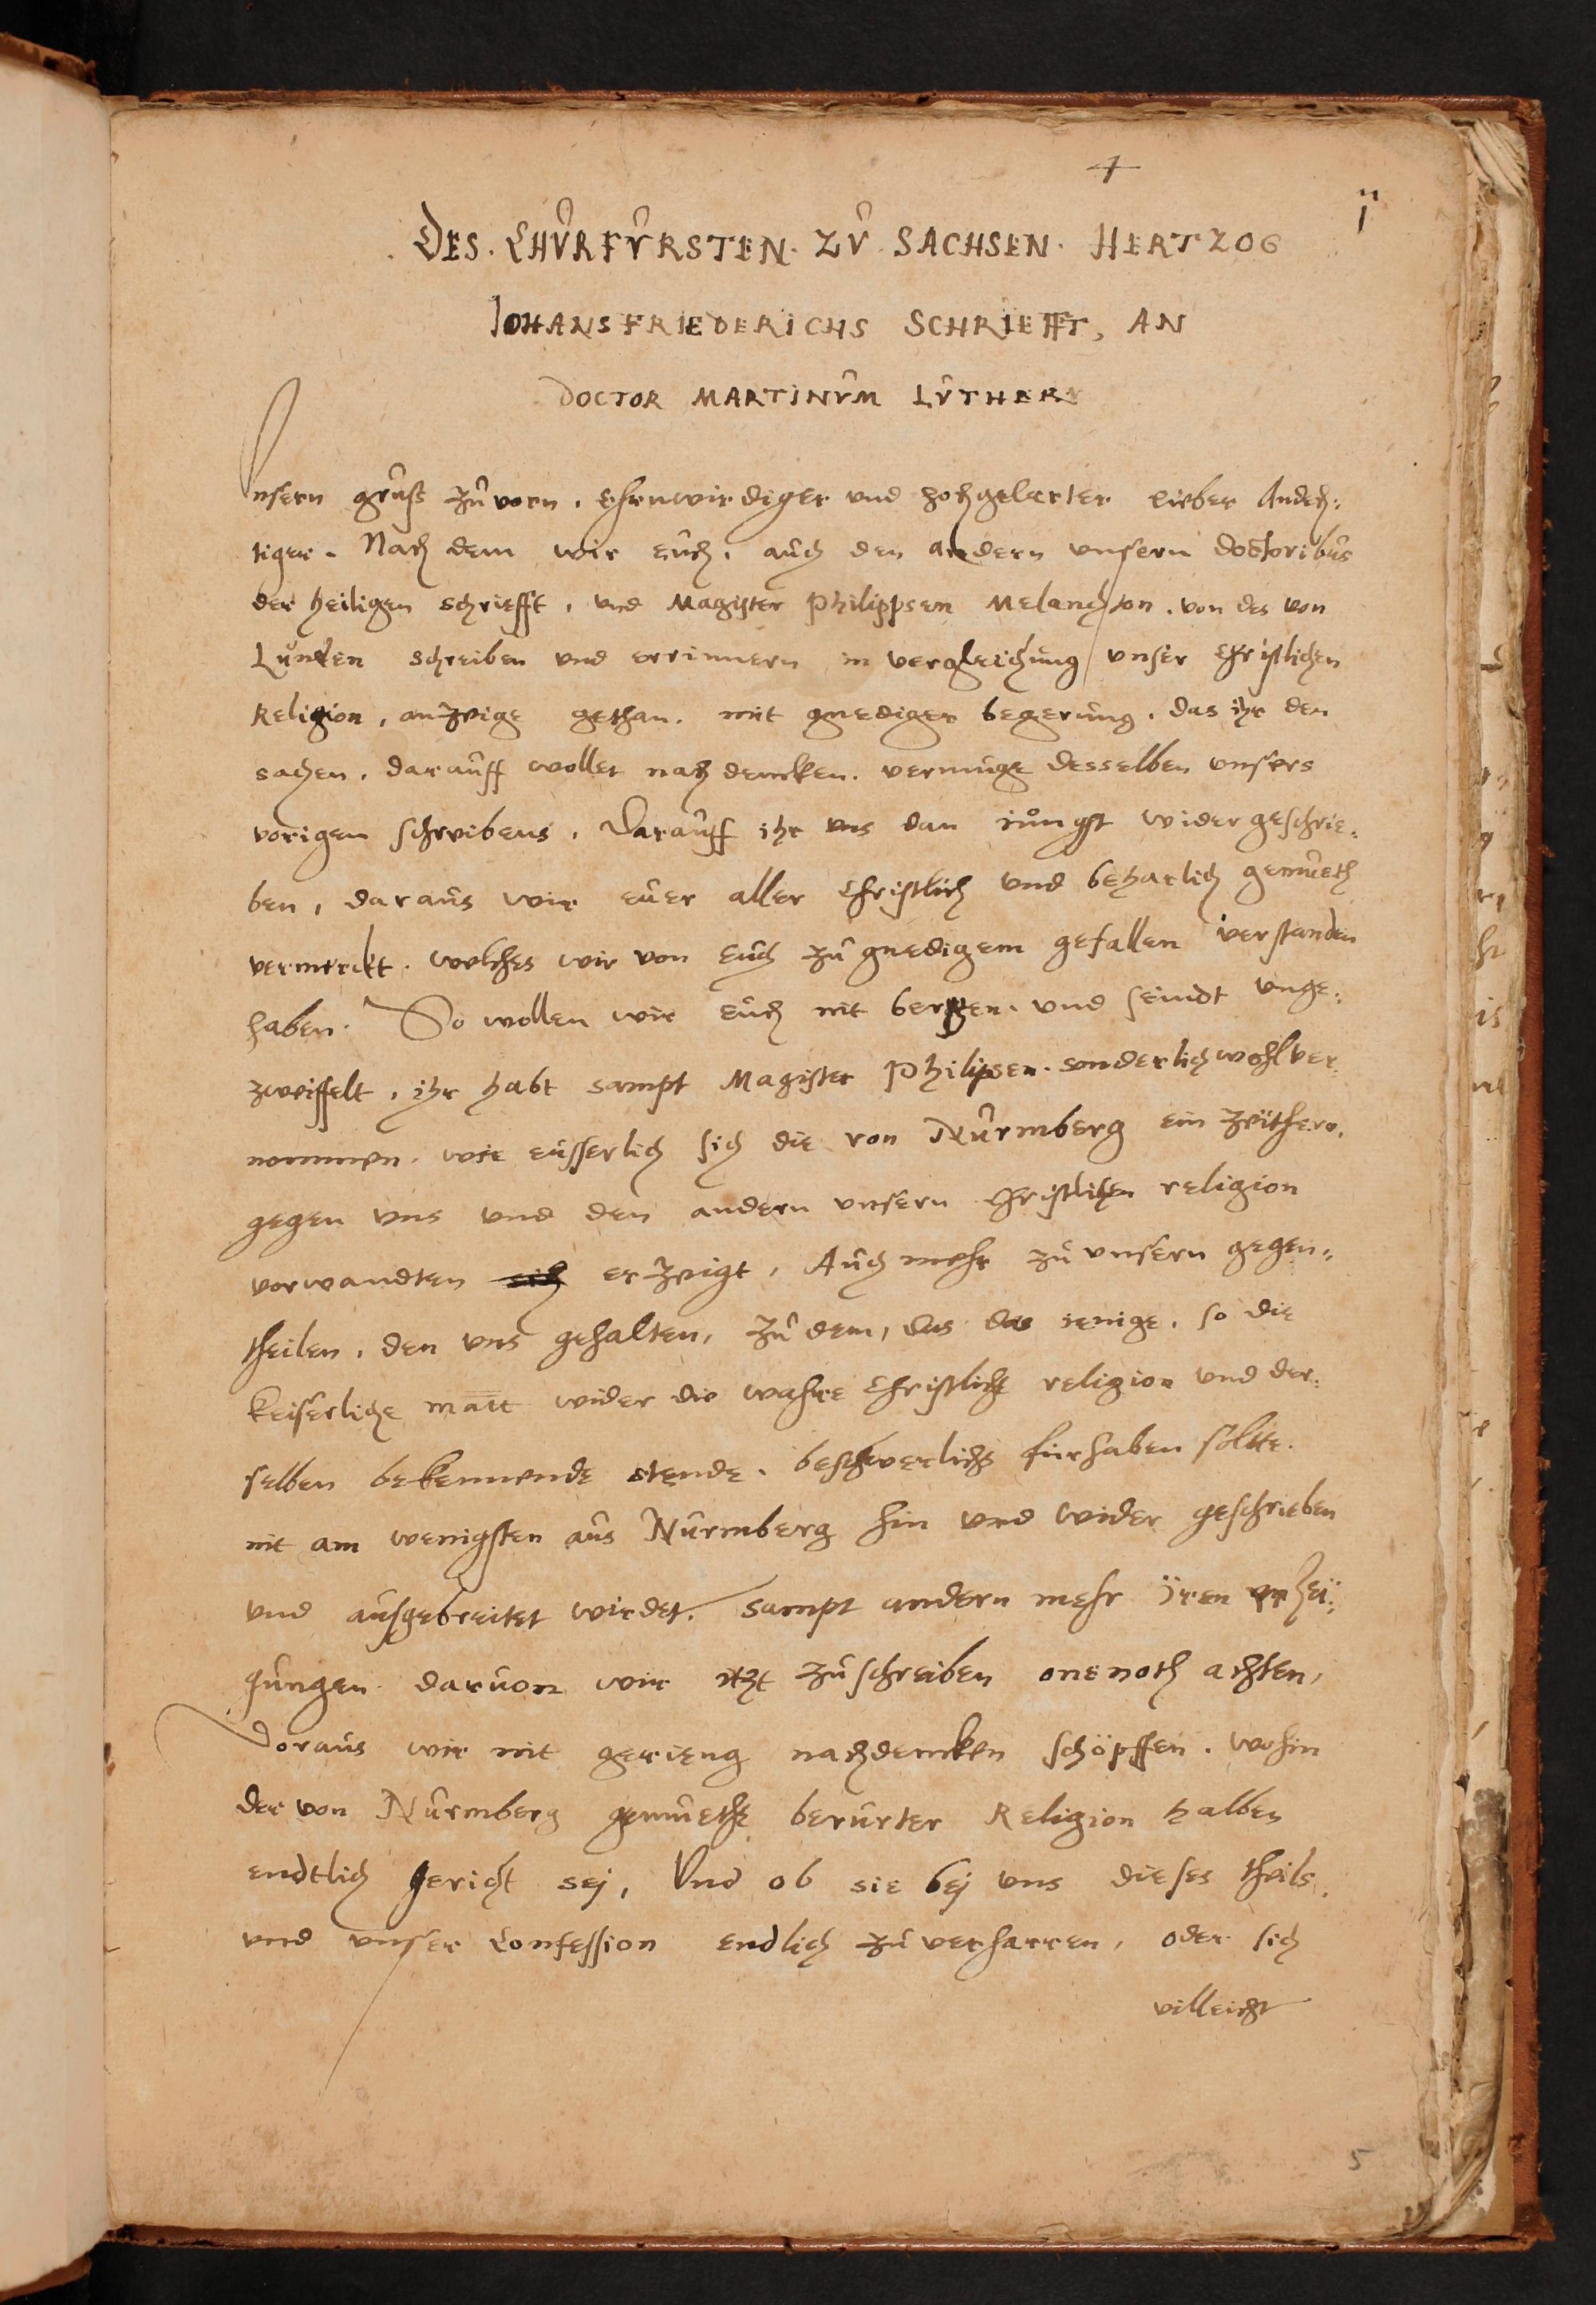 1
DES. CHURFURSTEN. ZU SACHSEN. HERTZOG
JOHANSFRIEDERICHS SCHRIEFFT, AN
DOCTOR MARTINUM LUTHER
Vnsern gruß zuvorn, Ehrnwirdiger vnd hochgelarter lieber Andech:
tiger. Nach dem wir euch, auch den andern vnsern doctoribus
der heiligen schriefft, vnd Magister Philippsen Melanchton, von des von
Lunden schreiben vnd errinnern in vergleichung vnser Christlichen
Religion, anzeige gethan. mit gnediger begerung, das ihr den
sachen, darauff wollet nach dencken. vermuge desselben vnsers
vorigen schreibens, Darauff ihr vns dan iungst wider geschrie:
ben, daraus wir euer aller Christlich vnd beharlich gemueth
vermerckt. welches wir von Euch zu gnedigem gefallen verstanden
haben. So wollen wir Euch nit bergen. vnd seindt vnge:
zweiffelt, ihr habt sampt Magister Philipsen. sonderlich wohl ver:
nommen. wie eusserlich sich die von Nurmberg ein zeithero,
gegen vns vnd den andern vnsern Christlichen religion
vorwandten erzeigt, Auch mehr zu vnsern gegen:
theilen, den vns gehalten, zu dem, das das ienige, so die
keiserliche matt wider die wahre Christliche religion vnd der:
selben bekennende stende. beschwerlichs furhaben solte.
nit am wenigsten aus Nurmberg hin vnd wider geschrieben
vnd ausgebreitet wirdet. Sampt andern mehr iren erzei:
gungen daruon wir itzt zuschreiben onenoth achten,
Doraus wir nit gerieng nachdencken schöpffen. wohin
der von Nurmberg gemuethe berurter Religion halben
endtlich gericht sej, Vnd ob sie bej vns dieses theils,
vnd vnser Confession endlich zu verharren, oder sich
villeicht
5